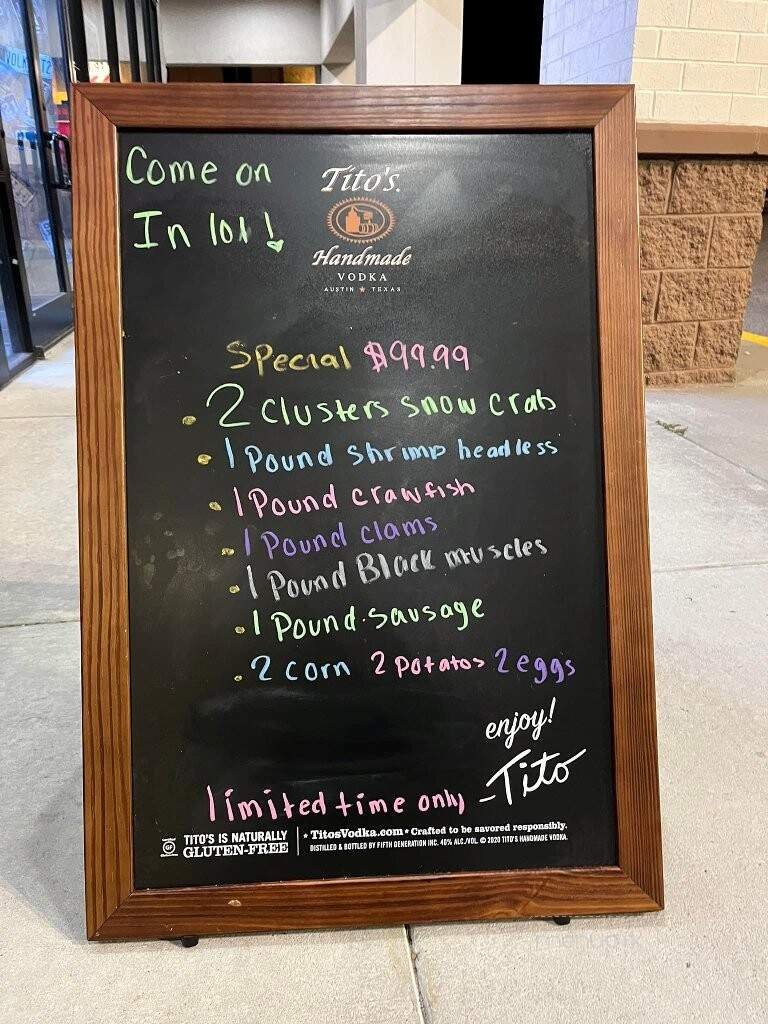 Come on
In lol!
Tito's.
Handmade
VODKA
AUSTIN ★ TEXAS
Special $99.99
• 2 clusters snow crab
• 1 Pound shrimp headless
• 1 Pound crawfish
• 1 Pound clams
• 1 Pound Black muscles
• 1 Pound sausage
• 2 corn 2 Potatos 2 eggs
enjoy!
-Tito
limited time only
GF
TITO'S IS NATURALLY
GLUTEN-FREE
• TitosVodka.com • Crafted to be savored responsibly.
DISTILLED & BOTTLED BY FIFTH GENERATION INC. 40% ALC./VOL. © 2020 TITO'S HANDMADE VODKA.